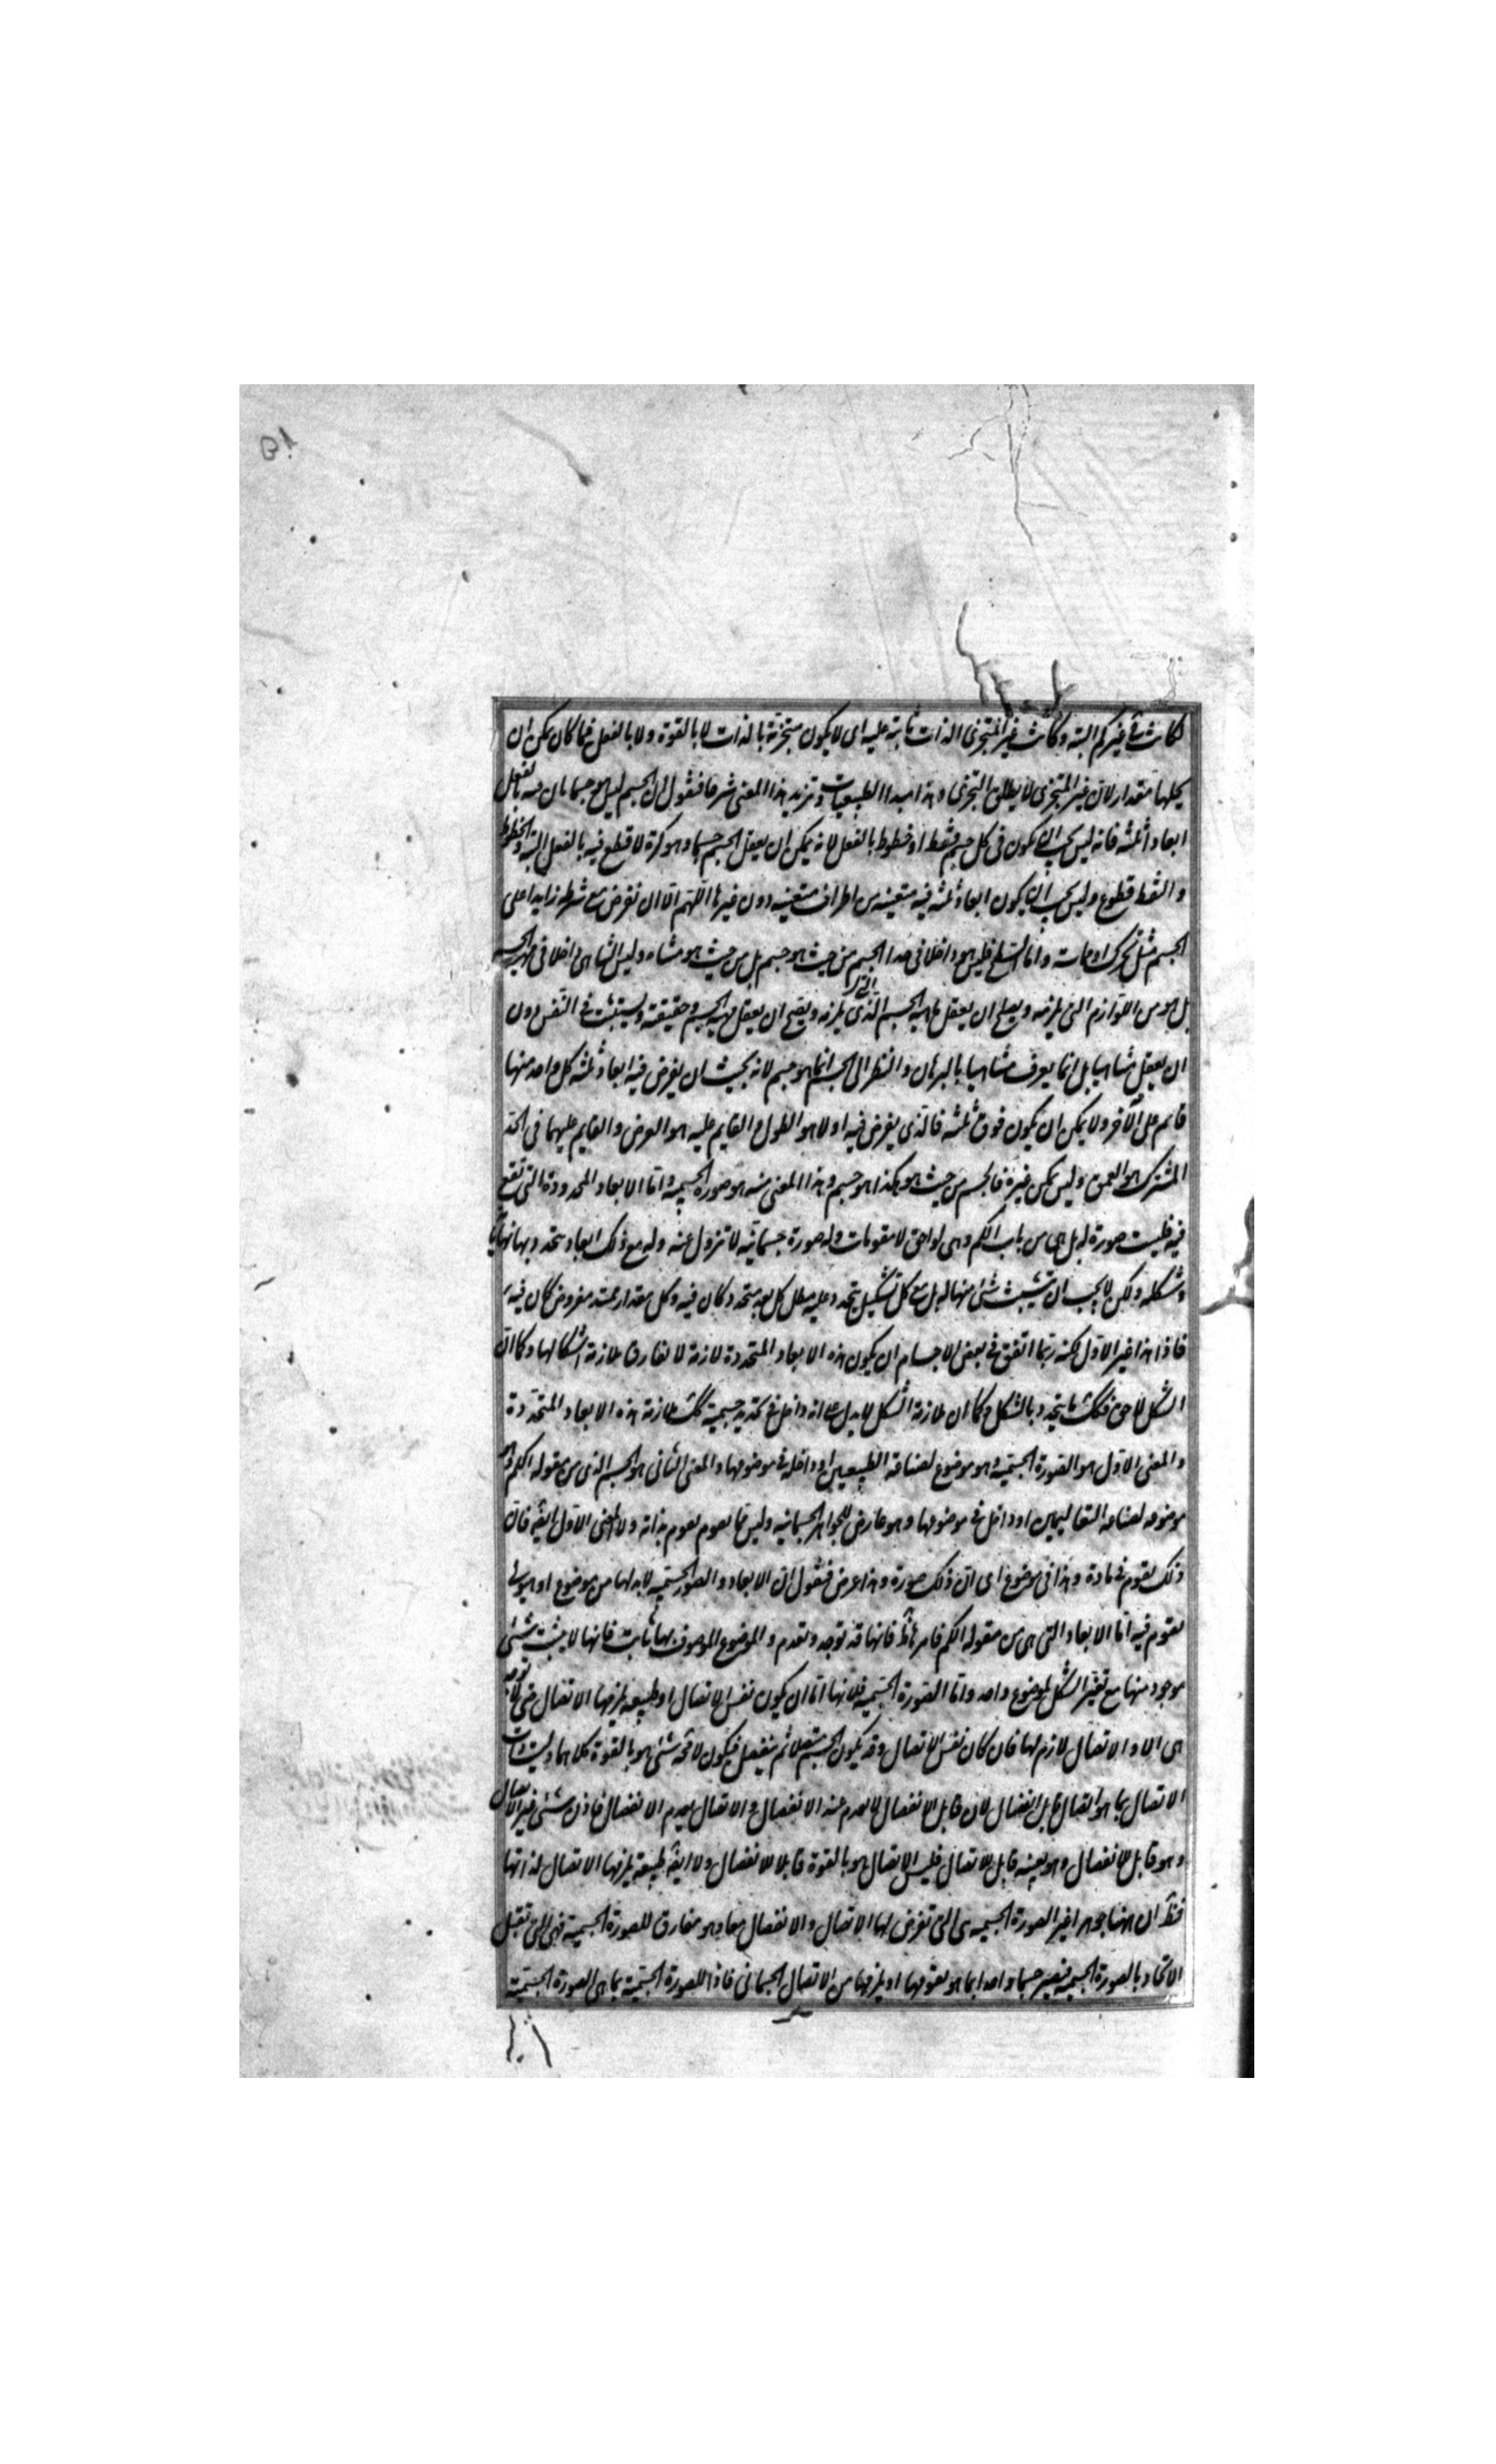 كانت شى غير كم البتة وكانت غير المتجزى الذات ثابتة عليه اى لا يكون متجزية بالذات لا بالقوة ولا بالفعل فما كان يمكن ان
يحلها مقدار لان غير المتجزى لا يطابق المتجزى وهذا مبدا الطبيعيات ونزيد هذا المعنى شرحا فنقول ان الجسم ليس هو جسما بان فيه بالفعل
ابعادا ثلثة فانه ليس يجب ان يكون فى كل جسم نقط او خطوط بالفعل لانه يمكن ان يعقل الجسم جسما وهو كرة لا قطع فيه بالفعل البتة والخطوط
والنقط قطوع وليس يجب ان يكون ابعاد ثلثة فيه متعينة من اطراف متعينة دون غيرها اللهم الا ان نفرض مع شرط زايدا على
الجسم مثل تحرك او مماسة واما السطح فليس هو داخلا فى حد الجسم من حيث هو جسم بل من حيث هو متناه وليس التناهى داخلا فى مهية الجسم
بل هو من اللوازم التى يلزمه ويصلح ان يعقل ماهية الجسم الذى يلزمه ويصح ان يعقل مهية الجسم وحقيقته ويستثبت فى النفس دون
ان يعقل متناهيا بل انما يعرف متناهيا بالبرهان والنظر الى الجسم انما هو جسم لانه بحيث ان يفرض فيه ابعاد ثلثة كل واحد منها
قايم على الآخر ولا يمكن ان يكون فوق ثلثة فالذى يفرض فيه اولا هو الطول والقايم عليه هو العرض والقايم عليهما فى الحد
المشترك هو العمق وليس يمكن غيره فالجسم من حيث هو هكذا هو جسم وهذا المعنى منه هو صورة الجسمية واما الابعاد المحدودة التى تقع
فيه فليست صورة له بل هى من باب الكم وهى لواحق لا مقومات وله صورة جسمانية لا تزول عنه وله مع ذلك ابعاد يتحدد بها نهاياته
وشكله ولكن لا يجب ان يثبت شئ منها له بل مع كل تشكيل يتحدد عليه يبطل كل بعد متحدد كان فيه وكل مقدار ممتد مفروض كان فيه
فاذا هذا غير الاول لكنه ربما اتفق فى بعض الاجسام ان يكون هذه الابعاد المتحددة لازمة لا تفارق ملازمة اشكالها وكما ان
الشكل لاحق فكذلك ما يتحدد بالشكل وكما ان ملازمة الشكل لا يدل على انه داخل فى تحديد جسمية كذلك ملازمة هذه الابعاد المتحددة
والمعنى الاول هو الصورة الجسمية وهو موضوع لصناعة الطبيعيين او داخلة فى موضوعها والمعنى الثانى هو الجسم الذى من مقولة الكم وهو
موضوعه لصناعة التعاليميين او داخل فى موضوعها وهو عارض للجواهر الجسمانية وليس مما يقوم بذاته ولا المعنى الاول ايضا فان
ذلك يقوم فى مادة وهذا فى موضوع اى ان ذلك صورة وهذا عرض فنقول ان الابعاد والصور الجسمية لا بد لها من موضوع او هيولى
يقوم فيه اما الابعاد التى هى من مقولة الكم فامرها ظ فانها قد توجد وتعدم والموضوع الموصوف بها ثابت فانها لا يثبت شئ
موجود منها مع تغير الشكل لموضوع واحد واما الصورة الجسمية فلانها اما ان يكون نفس الاتصال او طبيعة يلزمها الاتصال حتى لا توجد
هى الا والاتصال لازم لها فان كان نفس الاتصال وقد يكون الجسم متصلا ثم ينفصل فيكون لا محة شئ هو بالقوة كلاهما وليست ذات
الاتصال بما هو اتصال قابل الانفصال لان قابل الانفصال لا يعدم عند الانفصال والاتصال يعدم الانفصال فاذن شئ غير الاتصال
وهو قابل للانفصال وهو بعينه قابل للاتصال فليس الاتصال هو بالقوة قابلا للانفصال ولا ايضا طبيعة يلزمها الاتصال لذاتها
فظ ان ههنا جوهرا غير الصورة الجسمية هى التى تعرض لها الاتصال والانفصال معا وهو مفارق للصورة الجسمية فهى التى تقبل
الاتحاد بالصورة الجسمية فيصير جسما واحدا بما هو يقومها او يلزمها من الاتصال الجسمانى فاذا للصورة الجسمية بما هى الصورة الجسمية